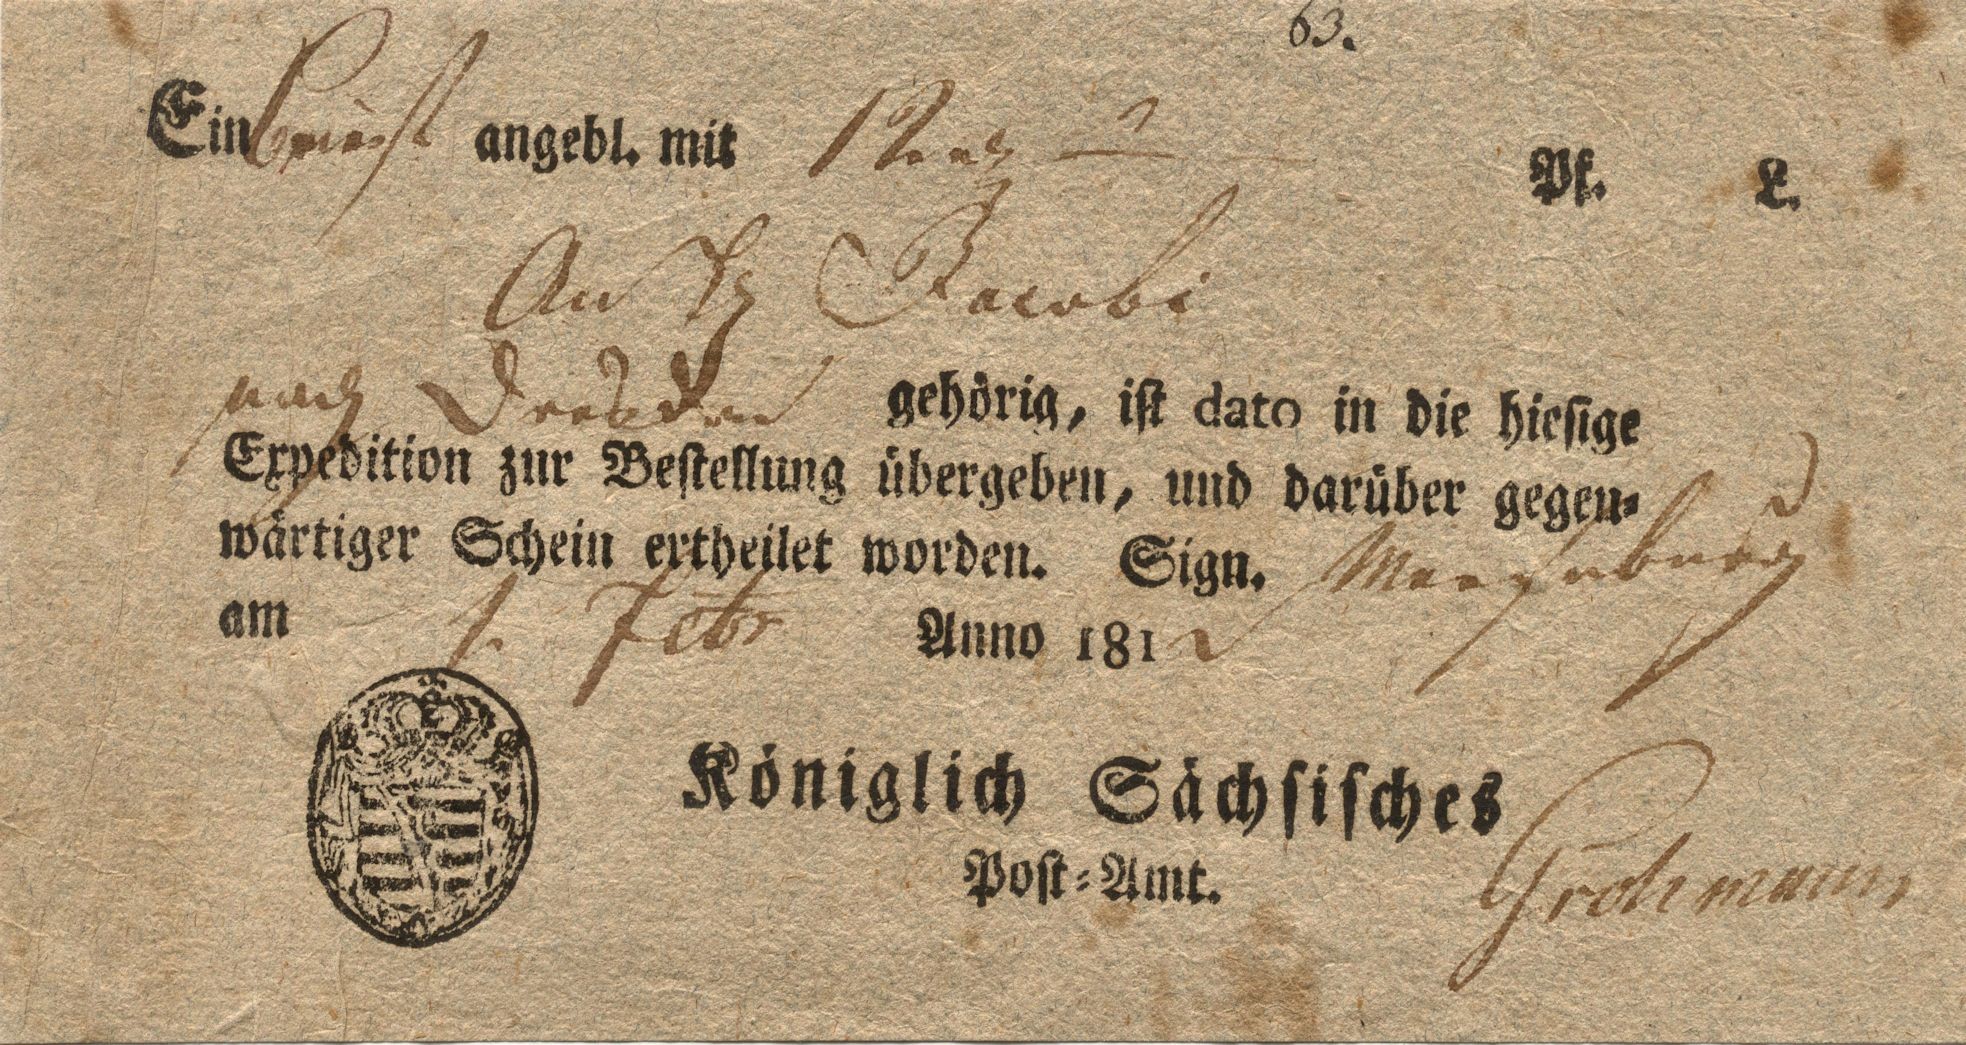 63.
Ein angebl. mit Pf. L.
An Jacobi
nach Dresden gehörig, ist dato in die hiesige
Expedition zur Bestellung übergeben, und darüber gegen-
wärtiger Schein ertheilet worden. Sign. Merseburg
am 1. Febr Anno 1812
Königlich Sächsisches
Post-Amt. Grohmann